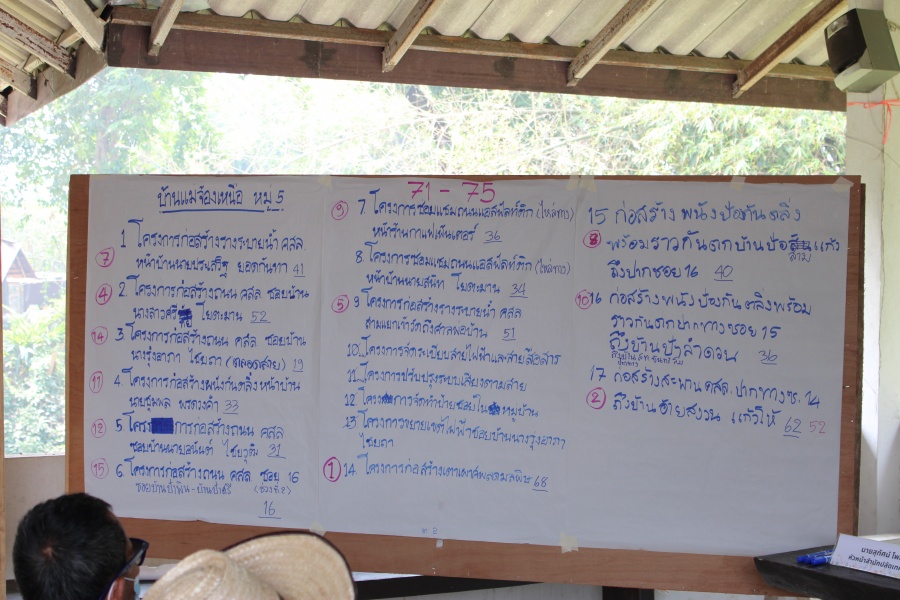 บ้านแม่จ้องเหนือ หมู่ 5
1 โครงการก่อสร้างรางระบายน้ำ คสล
7 หน้าบ้านนายประเสริฐ ยอดกันทา 41
4 2. โครงการก่อสร้างถนน คสล. ซอยบ้าน
นางสาวศรี โยตะมาน 52
14 3. โครงการก่อสร้างถนน คสล ซอยบ้าน
นางรุ่งอาภา ไชยถา (ตลอดสาย) 19
11 4. โครงการก่อสร้างผนังกันตลิ่งหน้าบ้าน
นายชุมพล พรดวงคำ 33
12 5 โครงการก่อสร้างถนน คสล
ซอยบ้านนายอนันต์ ไชยวุฒิ 31
15 6. โครงการก่อสร้างถนน คสล ซอย 16
ซอยบ้านป้าพิน - บ้านป่าศรี (ช่วงที่ 2)
16
71 - 75
9 7. โครงการซ่อมแซมถนนแอสฟัลท์ติก (ไหล่ทาง)
หน้าร้านกาแฟฟินเตอร์ 36
8. โครงการซ่อมแซมถนนแอสฟัลท์ติก (ไหล่ทาง)
หน้าบ้านนายสนิท โยตะมาน 34
5 9 โครงการก่อสร้างรางระบายน้ำ คสล
สามแยกเจ้ารัดถึงศาลพ่อบ้าน 51
10. โครงการจัดระเบียบสายไฟฟ้าและสายสื่อสาร
11. โครงการปรับปรุงระบบเสียงตามสาย
12 โครงการจัดทำป้ายซอยในหมู่บ้าน
13 โครงการขยายเขตไฟฟ้าซอยบ้านนางรุ่งอาภา
ไชยถา
1 14. โครงการก่อสร้างเตาเผาศพลดมลพิษ 68
15 ก่อสร้างพนังป้องกันตลิ่ง
8 พร้อมราวกันตกบ้านป้อ แก้ว
ถึงปากซอย 16 40
10 16 ก่อสร้างพนังป้องกันตลิ่งพร้อม
ราวกันตกปากทางซอย 15
ถึงบ้านป้าลำดวน 36
17 ก่อสร้างสะพาน คสล. ปากทางซ. 14
2 ถึงบ้านอ้ายสงวน แก้วให้ 62 52
นายสุทัศน์
หัวหน้าสำนักปลัดเทศ